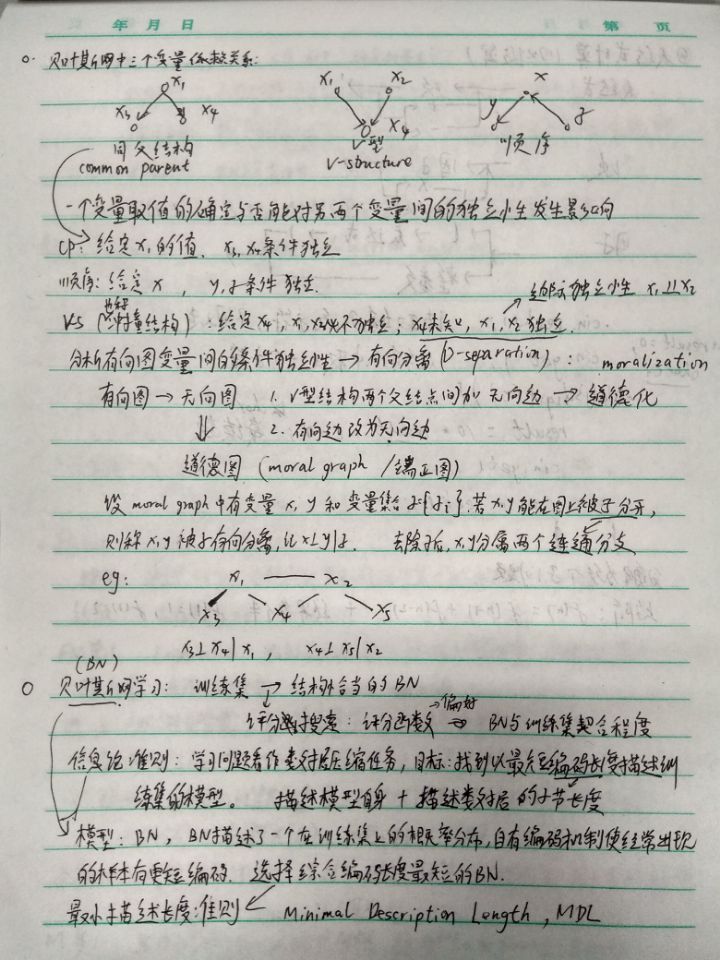 年 月 日 第 页
贝叶斯网中三个变量依赖关系:
x1 x1 x2 x
x3 x4 x4 y z
同父结构 V型 顺序
common parent V-structure
一个变量取值的确定与否能对另两个变量间的独立性发生影响
CP: 给定x1的值, x3, x4条件独立
顺序: 给定x , y, z条件独立.
边际独立性 x1⊥x2
VS ( 结构): 给定x4, x1, x2必不独立; x4未知, x1, x2独立.
分析有向图变量间的条件独立性 → 有向分离 (D-separation): moralization
有向图 → 无向图 1. V型结构两个父结点间加无向边 → 道德化
2. 有向边改为无向边
道德图 (moral graph /端正图)
设 moral graph 中有变量 x, y 和变量集合 z{zi}. 若x, y能在图上被z分开,
则称x, y被z有向分离, 记x⊥y|z. 去除z后, x, y分属两个连通分支
eg: x1 x2
x3 x4 x5
x3⊥x4|x1 , x4⊥x5|x2
(BN)
贝叶斯网学习: 训练集 → 结构恰当的BN
偏好
评分搜索: 评分函数 ⇒ BN与训练集契合程度
信息论准则: 学习问题看作数据压缩任务, 目标: 找到以最短编码长度描述训
练集的模型。 描述模型自身 + 描述数据的字节长度
模型: BN, BN描述了一个在训练集上的概率分布, 自有编码机制使经常出现
的样本有更短编码. 选择综合编码长度最短的BN.
最小描述长度准则 Minimal Description Length, MDL